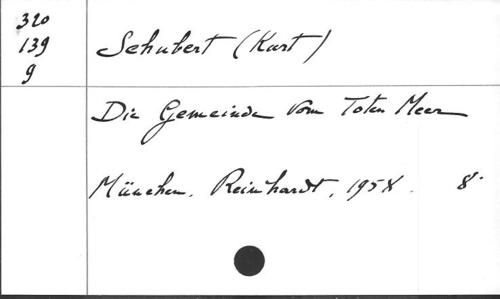 320
139
9
Schubert (Kurt)
Die Gemeinde vom Toten Meer
München. Reinhardt, 1958. 8°